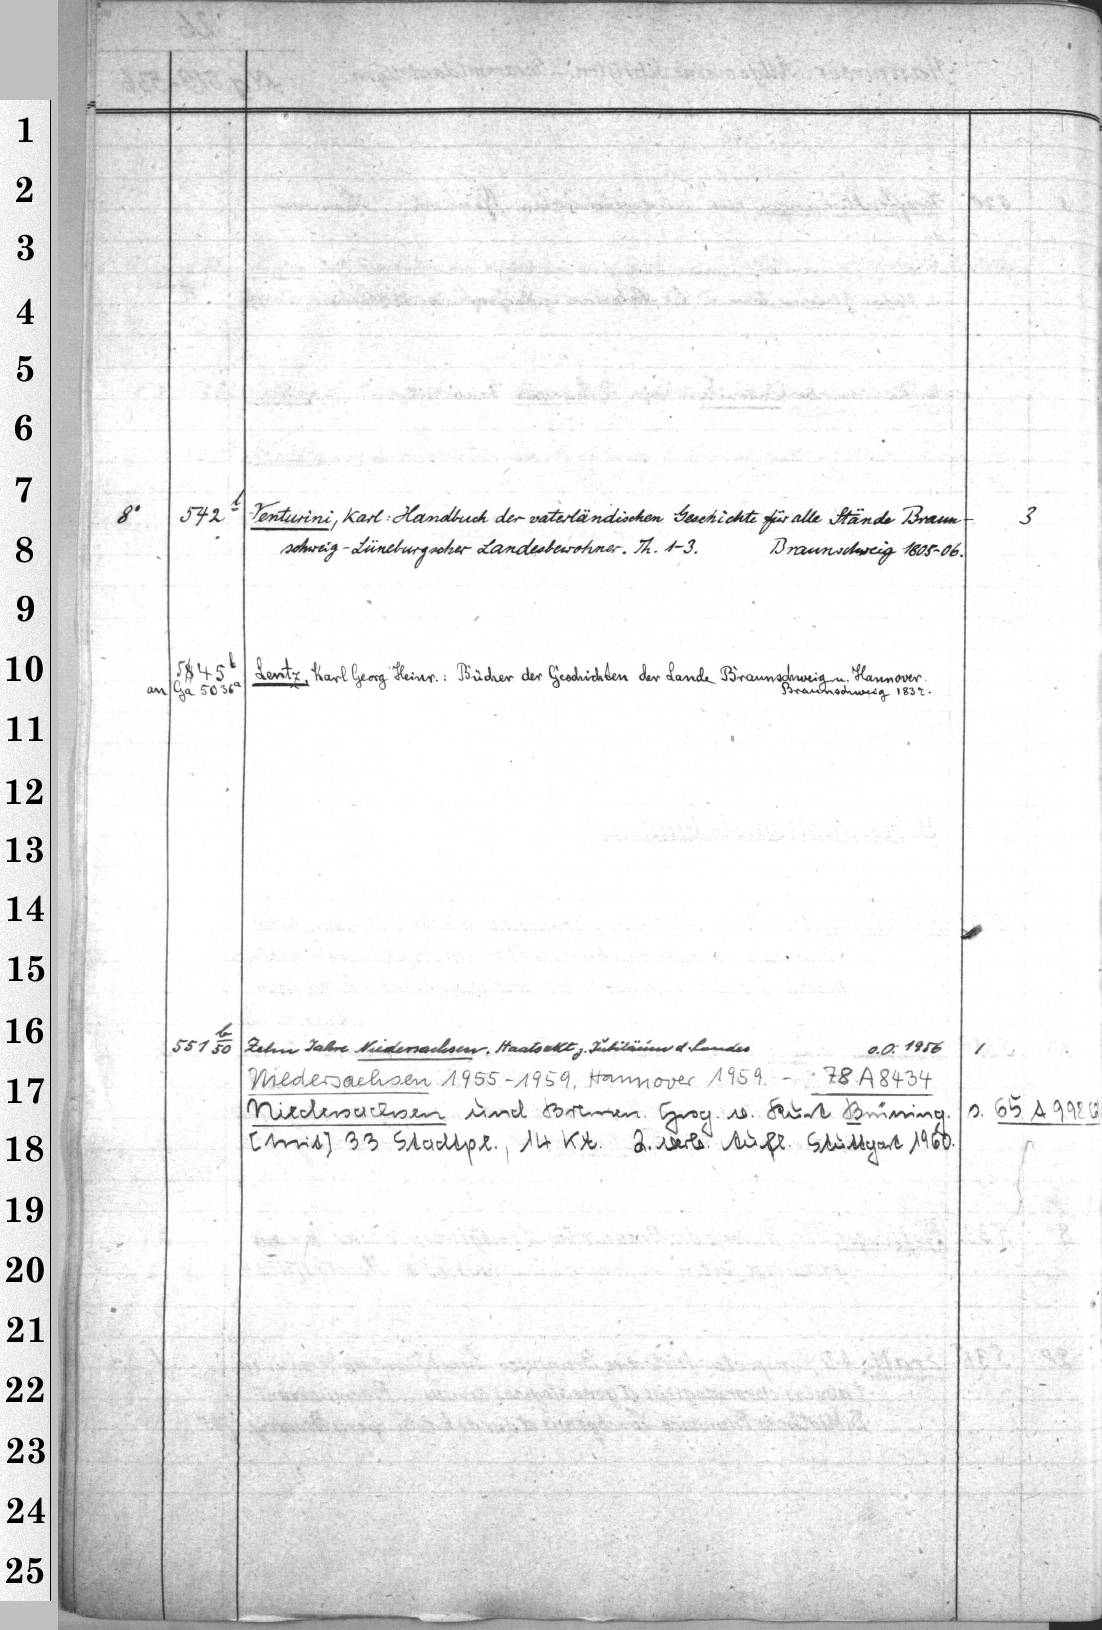 1
2
3
4
5
6
7
8
9
10
11
12
13
14
15
16
17
18
19
20
21
22
23
24
25
8° 542 l Venturini, Karl: Handbuch der vaterländischen Geschichte für alle Stände Braun- 3
schweig-Lüneburgscher Landesbewohner. Th. 1-3. Braunschweig 1805-06.
545 b Lentz, Karl Georg Heinr.: Bücher der Geschichten der Lande Braunschweig u. Hannover.
an Ga 5036 a Braunschweig 1837.
551 b/50 Zehn Jahre Niedersachsen. Staatsakt z. Jubiläum d. Landes o.O. 1956 1
Niedersachsen 1955-1959. Hannover 1959. - 78 A 8434
Niedersachsen und Bremen. Hrsg. v. Kurt Brüning. s. 65 A 998
[Mit] 33 Stadtpl., 14 Kt. 2. verb. Aufl. Stuttgart 1960.